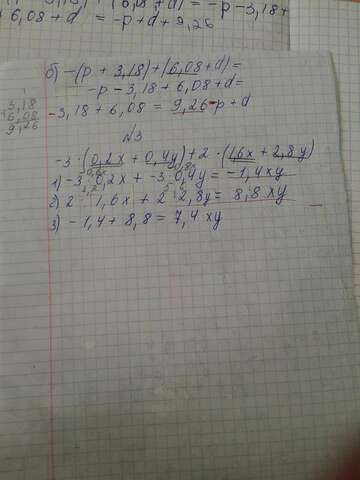 + 6,08 + d = -p + d + 9,26
б) -(p + 3,18) + (6,08 + d) =
-p - 3,18 + 6,08 + d =
-3,18 + 6,08 = 9,26 - p + d
3,18
6,08
9,26
№3
-3 · (0,2x + 0,4y) + 2 · (1,6x + 2,8y)
1) -3 · 0,2x + -3 · 0,4y = -1,4xy
2) 2 · 1,6x + 2 · 2,8y = 8,8xy
3) -1,4 + 8,8 = 7,4xy